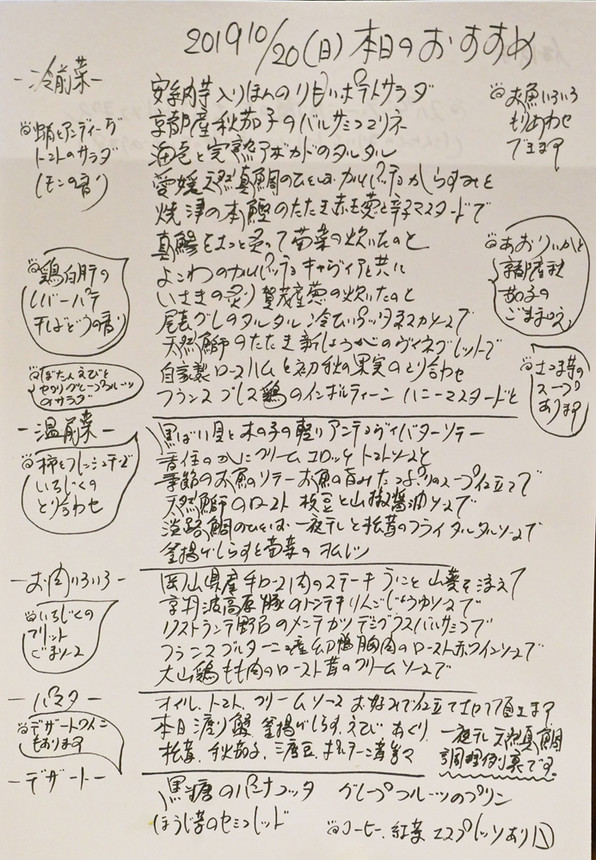 2019 10/20(日)本日のおすすめ
-冷前菜-
蛸とアンディーブ
トマトのサラダ
レモンの香り
鶏白肝の
レバーパテ
干しぶどうの香り
ぼたんえびと
セロリグレープフルーツ
のサラダ
安納芋入りほんのり甘いポテトサラダ
京都産秋茄子のバルサミコマリネ
海老と完熟アボカドのタルタル
愛媛天然真鯛のひとしおカルパッチョからすみと
焼津の本鰹のたたき赤玉葱と辛子マスタードで
真鯵をさっと炙って 菜の炊いたのと
よこわのカルパッチョ キャヴィアと共に
いさきの炙り 賀茂茄 の炊いたのと
尾長グレのタルタル 冷たい ソースで
天然鰤のたたき新しょうがのヴィネグレットで
自家製ロースハムと初秋の果実のとり合わせ
フランス ブレス鶏のインボルティーニ ハニーマスタードと
お魚いろいろ
もりあわせ
できます
あおりいかと
京都産秋
茄子の
ごま和え
さつま芋の
スープ
あります
-温前菜-
柿とフレッシュチーズ
いちじくの
とり合わせ
黒ばい貝と木の子の軽いアンチョヴィバターソテー
香住のかにクリームコロッケ トマトソースと
季節のお魚のソテーお魚の旨みたっぷりのスープ仕立てで
天然鰤のロースト 枝豆と山椒醤油ソースで
淡路鯛のひとしお一夜干しと松茸のフライ タルタルソースで
釜揚げしらすと 菜のオムレツ
-お肉いろいろ-
いちじくの
フリット
ごまソース
岡山県産牛ロース肉のステーキ うにと山葵を添えて
京丹波高原豚のトンテキりんごじょうゆソースで
リストランテ野呂のメンチカツ デミグラスバルサミコで
フランスブルターニュ産幼鴨胸肉のロースト赤ワインソースで
大山鶏もも肉のロースト茸のクリームソースで
-パスタ-
デザートワイン
もあります
オイル、トマト、クリームソース お好みで仕立てさせて頂きます
本日 渡り蟹、釜揚げしらす、えび、あぐり、
松茸、秋茄子、三度豆、ポルチーニ茸等々
一夜干し天然真鯛
調理例裏です
-デザート-
黒糖のパンナコッタ グレープフルーツのプリン
ほうじ茶のセミフレッド
コーヒー、紅茶 エスプレッソあり